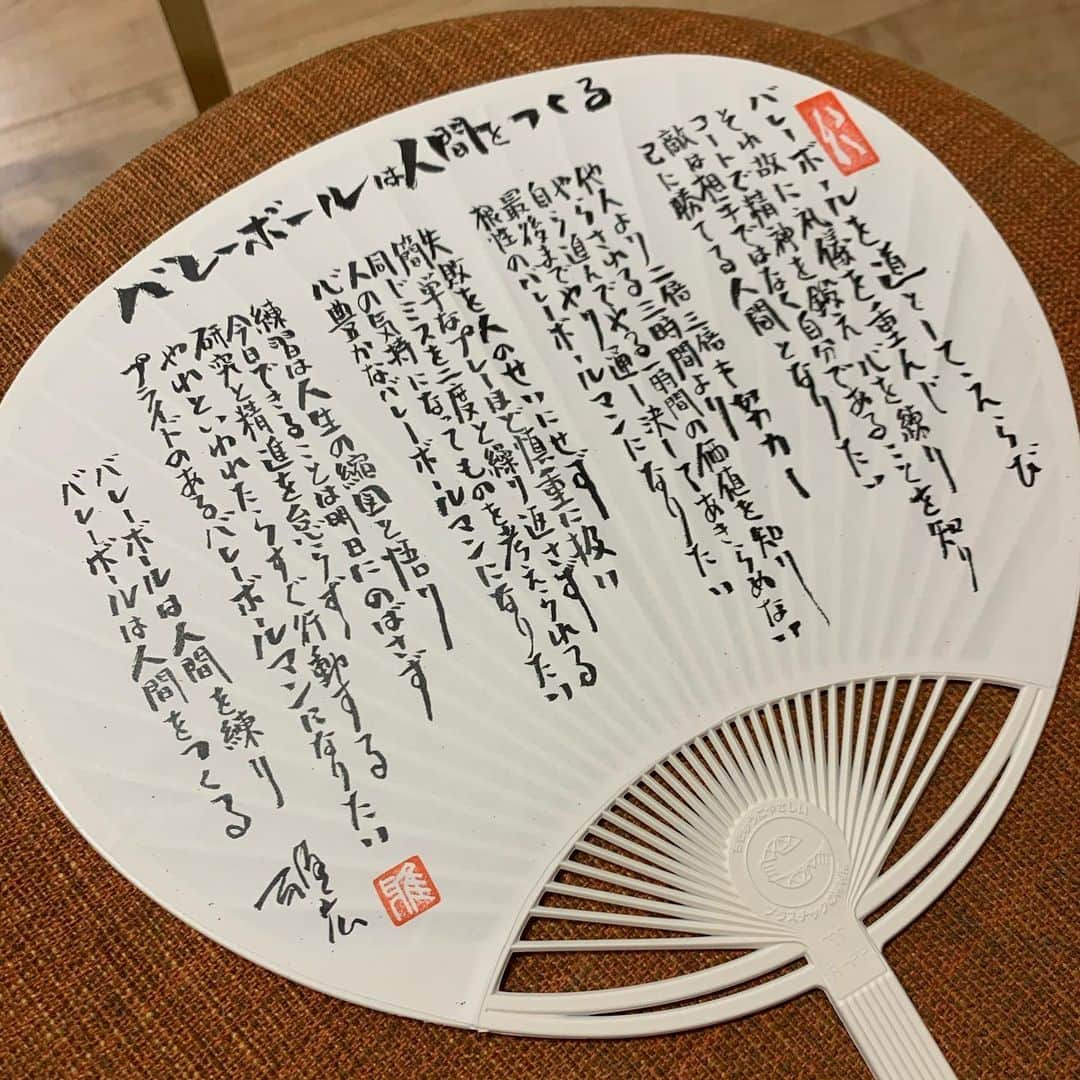 バレーボールは人間をつくる
バレーボールを道としてえらび
それ故に礼儀を重んじ心を練り
コートで精神を鍛え
敵は相手ではなく自分であることを知り
己に勝てる人間となりたい
他人より二倍三倍も努力し
やらされる三時間より
自ら進んでやる一時間の価値を知り
最後までやり通し決してあきらめない
根性のバレーボールマンになりたい
失敗を人のせいにせず
簡単なプレーほど慎重に扱い
同じミスを二度と繰り返さず
人の気持になってものを考えられる
心豊かなバレーボールマンになりたい
練習は人生の縮図と悟り
今日できることは明日にのばさず
研究と精進を怠らず
やれといわれたらすぐ行動する
プライドのあるバレーボールマンになりたい
バレーボールは人間を練り
バレーボールは人間をつくる
雅広
雅
にやさしい
プラスチック